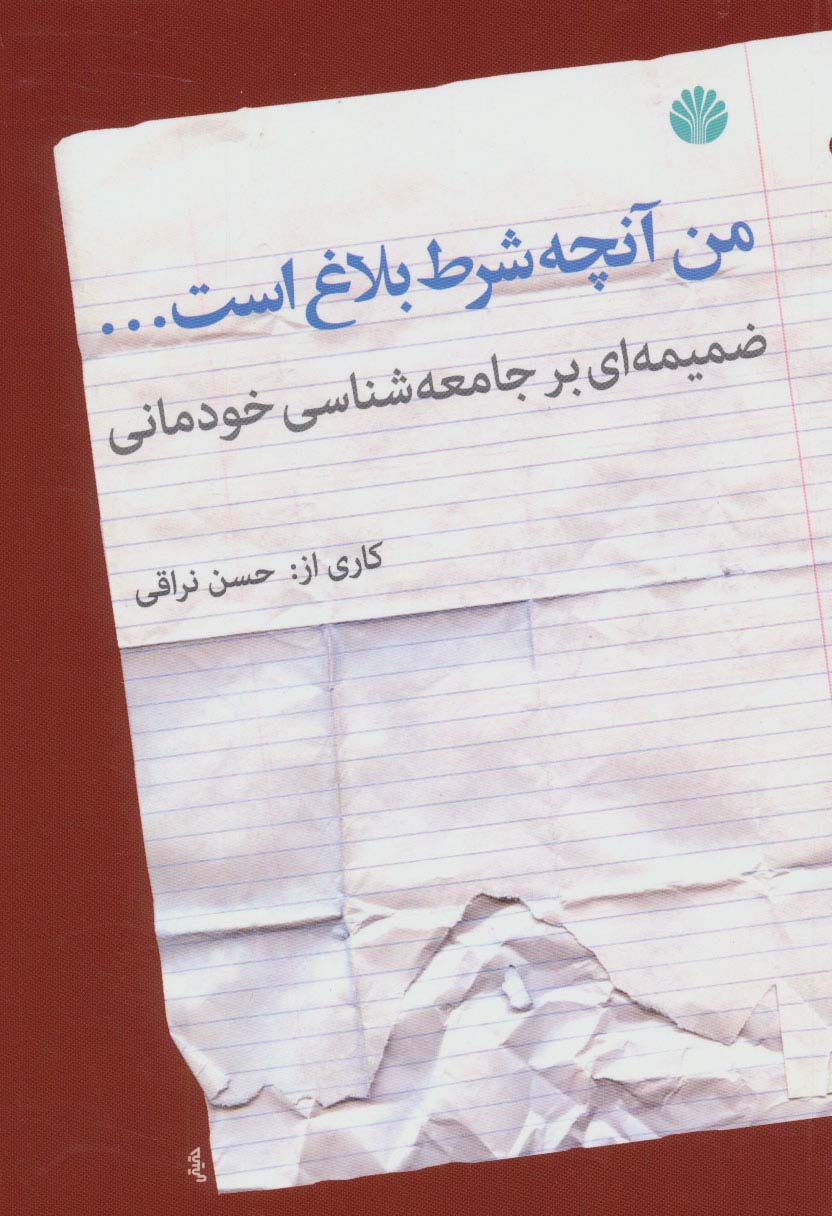 من آنچه شرط بلاغ است...
ضمیمه‌ای بر جامعه‌شناسی خودمانی
کاری از: حسن نراقی